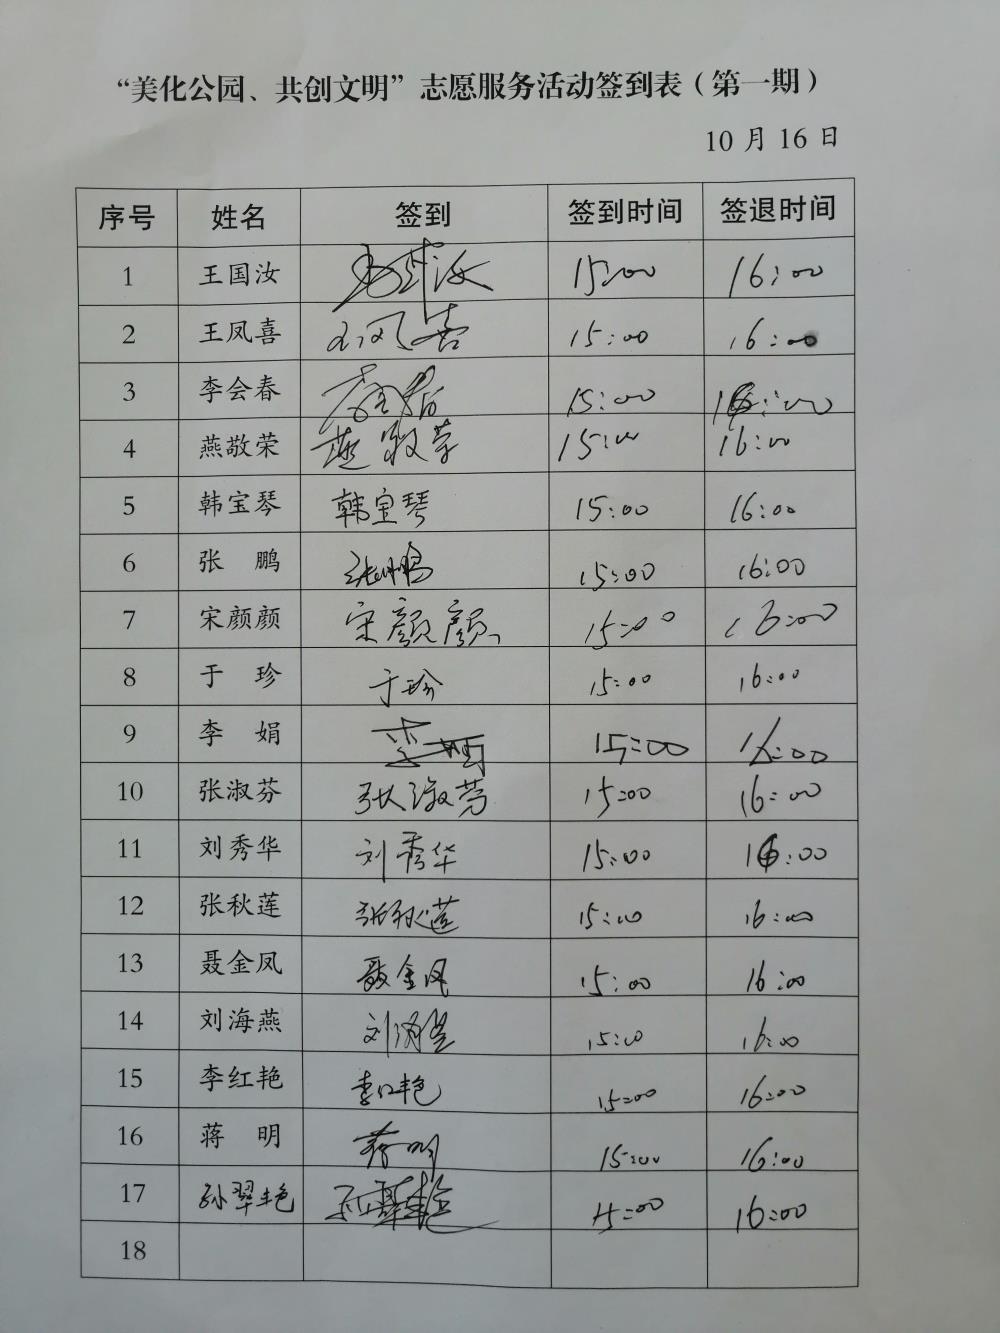 “美化公园、共创文明”志愿服务活动签到表（第一期）
10 月 16 日
序号 姓名 签到 签到时间 签退时间
1 王国汝 王国汝 15:00 16:00
2 王凤喜 王凤喜 15:00 16:00
3 李会春 李会春 15:00 16:00
4 燕敬荣 燕敬荣 15:00 16:00
5 韩宝琴 韩宝琴 15:00 16:00
6 张 鹏 张鹏 15:00 16:00
7 宋颜颜 宋颜颜 15:00 16:00
8 于 珍 于珍 15:00 16:00
9 李 娟 李娟 15:00 16:00
10 张淑芬 张淑芬 15:00 16:00
11 刘秀华 刘秀华 15:00 16:00
12 张秋莲 张秋莲 15:00 16:00
13 聂金凤 聂金凤 15:00 16:00
14 刘海燕 刘海燕 15:00 16:00
15 李红艳 李红艳 15:00 16:00
16 蒋 明 蒋明 15:00 16:00
17 孙翠艳 孙翠艳 15:00 16:00
18